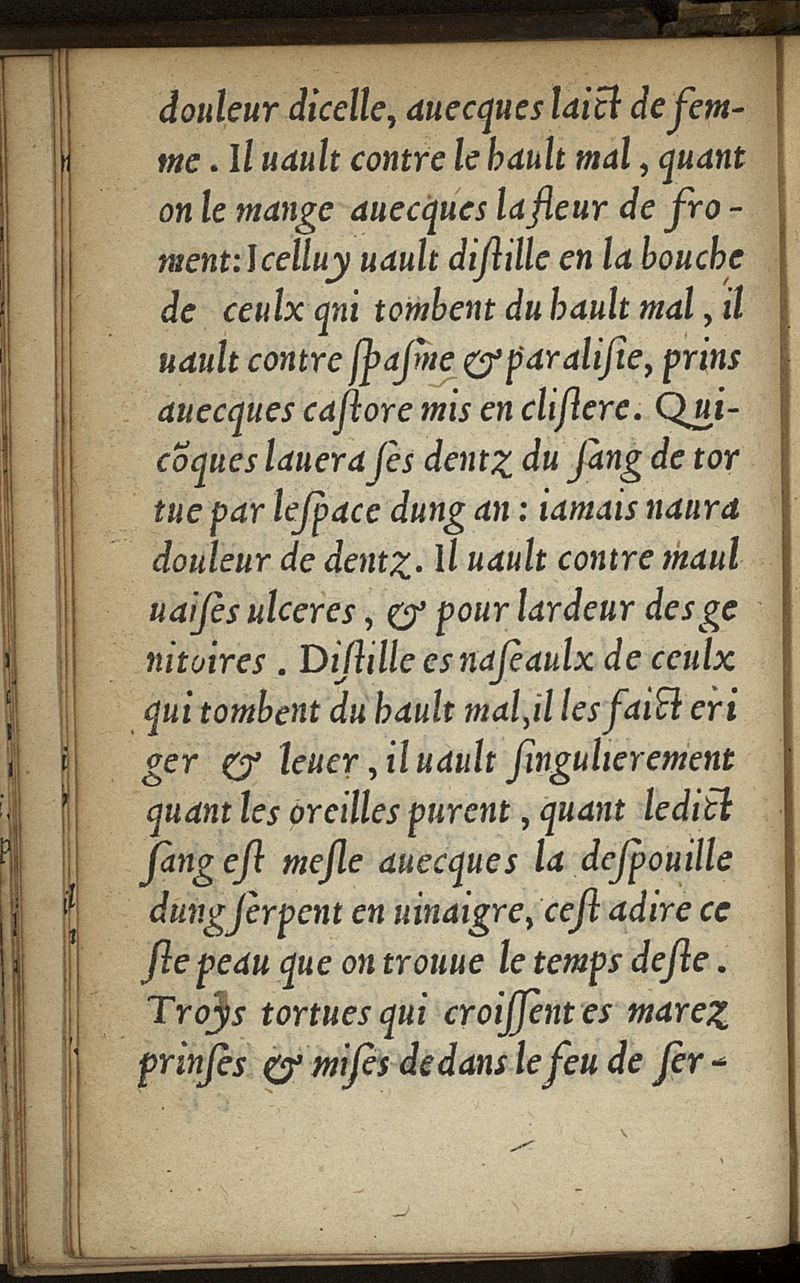 douleur dicelle, auecques laict de fem-
me . Il uault contre le hault mal , quant
on le mange auecques la fleur de fro -
ment: Icelluy uault diſtille en la bouche
de ceulx qni tombent du hault mal , il
uault contre ſpaſme & paraliſie, prins
auecques caſtore mis en cliſtere. Qui-
cõques lauera ſes dentz du ſang de tor
tue par leſpace dung an : iamais naura
douleur de dentz. Il uault contre maul
uaiſes ulceres , & pour lardeur des ge
nitoires . Diſtille es naſeaulx de ceulx
qui tombent du hault mal,il les faict eri
ger & leuer , il uault ſingulierement
quant les oreilles purent , quant ledict
ſang eſt meſle auecques la deſpouille
dung ſerpent en uinaigre, ceſt adire ce
ſte peau que on trouue le temps deſte .
Troys tortues qui croiſſent es marez
prinſes & miſes dedans le feu de ſer -